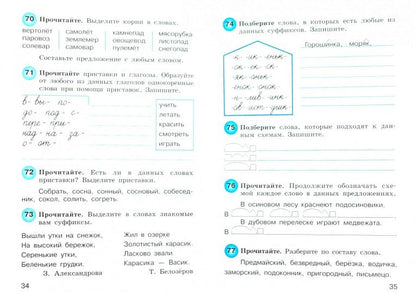 70 Прочитайте. Выделите корни в словах.
вертолёт самолёт камнепад мясорубка
паровоз землемер овощевод листопад
солевар самовар пулемёт снегопад
Составьте предложение с любым словом.
71 Прочитайте приставки и глаголы. Образуйте
от любого из данных глаголов однокоренные
слова при помощи приставок. Запишите.
в- вы- по-
до- под- с-
пере- при-
над- на- за-
о- от-
учить
летать
красить
смотреть
играть
72 Прочитайте. Есть ли в данных словах
приставки? Выделите приставки.
Собрать, сосна, сонный, сосновый, собесед-
ник, сокол, солить, согреть.
73 Прочитайте. Выделите в словах знакомые
вам суффиксы.
Вышли утки на снежок,
На высокий бережок,
Серенькие утки,
Беленькие грудки.
З. Александрова
Жил в озере
Золотистый карасик.
Ласково звали
Карасика — Васик.
Т. Белозёров
34
74 Подберите слова, в которых есть любые из
данных суффиксов. Запишите.
Горошинка, моряк,
75 Подберите слова, которые подходят к дан-
ным схемам. Запишите.
76 Прочитайте. Продолжите обозначать схе-
мой каждое слово в данных предложениях.
В осиновом лесу краснеют подосиновики.
В дубовом перелеске играют медвежата.
77 Прочитайте. Разберите по составу слова.
Предмайский, безвредный, берёзка, водичка,
заморский, подоконник, пригородный, письмецо.
35